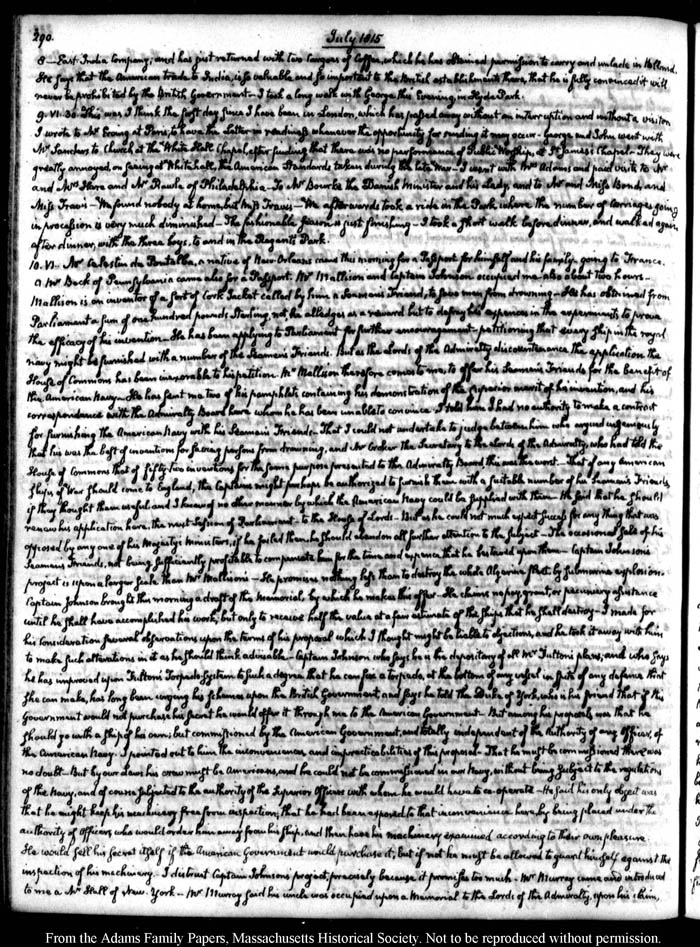 290. July 1815
8 — East-India Company; and has just returned with two Cargoes of Coffee, which he has obtained permission to carry and unlade in Holland.
He says that the American trade to India, is so valuable and so important to the British establishments there, that he is fully convinced it will
never be prohibited by the British Government — I took a long walk with George this Evening in Hyde Park.
9. VI. 30. This was I think the first day, since I have been in London, which has passed away without an interruption and without a visitor
I wrote to Mr Erving at Paris, to have the Letter in readiness whenever the opportunity for sending it may occur — George and John went with
Mr Sanders to Church at the White Hall Chapel, after finding that there was no performance of Public Worship, at St James's Chapel — They were
greatly annoyed, on seeing at Whitehall, the American Standards taken during the late War — I went with Mrs Adams and paid visits to Mr
and Mrs Hare and Mr Rawle of Philadelphia — To Mr Bourke the Danish Minister and his Lady, and to Mr and Miss Bond, and
Miss Travis — We found nobody at home, but Miss Travis — We afterwards took a ride in the Park, where the number of Carriages going
in procession is very much diminished — The fashionable season is just finishing — I took a short walk before dinner, and walked again
after dinner, with the three boys, to and in the Regent's Park.
10. VI — Mr Celestin de Pontalba, a native of New-Orleans came this morning for a Passport for himself and his family, going to France.
A Mr Buck of Pennsylvania came also for a Passport. Mr Mallison and Captain Johnson occupied me also about two hours —
Mallison is an inventor of a sort of Cork Jacket called by him a Seaman's Friend, to save men from drowning — He has obtained from
Parliament a sum of one hundred pounds Sterling, not he alledges as a reward but to defray his expences in the experiments to prove
the efficacy of his invention — He has been applying to Parliament for further encouragement — petitioning that every Ship in the royal
navy might be furnished with a number of the Seamen's Friends. But as the Lords of the Admiralty discountenance the application the
House of Commons has been inexorable to his petition. Mr Mallison therefore comes to me, to offer his Seaman's Friends for the benefit of
the American Navy — He has sent me two of his pamphlets containing his demonstration of the superior merit of his invention, and his
correspondence with the Admiralty Board here whom he has been unable to convince. I told him I had no authority to make a contract
for furnishing the American Navy with his Seaman's Friends — That I could not undertake to judge between him who argued ingeniously
that his was the best of inventions for saving persons from drowning, and Mr Croker the Secretary to the Lords of the Admiralty, who had told the
House of Commons that of fifty two inventions for the same purpose presented to the Admiralty Board, this was the worst. That if any American
Ships of War should come to England, the Captains might perhaps be authorized to furnish them with a suitable number of his Seaman's Friends,
if they thought them useful and I knew of no other manner by which the American Navy could be supplied with them — He said that he should
renew his application here, the next Session of Parliament, to the House of Lords — But as he could not much expect success for any thing that was
opposed by any one of his Majesty's Ministers, if he failed then, he should abandon all further attention to the subject — The occasional sale of his
Seaman's Friends, not being sufficiently profitable to compensate him for the time and expence, that he bestowed upon them — Captain Johnson's
project is upon a larger scale than Mr Mallison's — He promises nothing less than to destroy the whole Algerine fleet by submarine explosion.
Captain Johnson brought this morning a draft of the Memorial, by which he makes this offer — He claims no pay, grant, or pecuniary assistance
until he shall have accomplished his work, but only to receive half the value at a fair estimate of the Ships that he shall destroy — I made for
his consideration several observations upon the terms of his proposal which I thought might be liable to objections, and he took it away with him
to make such alterations in it as he should think advisable — Captain Johnson who says he is the depositary of all Mr Fulton's plans, and who says
he has improved upon Fulton's Torpedo-System to such a degree that he can fix a torpedo, at the bottom of any vessel in spite of any defence that
she can make, has long been urging his schemes upon the British Government and says he told the Duke of York, who is his friend that if this
Government would not purchase his secret he would offer it through me to the American Government — But among his proposals was that he
should go with a ship of his own; but commissioned by the American Government, and totally independent of the authority of any Officer, of
the American Navy. I pointed out to him the inconveniences and impracticabilities of this proposal — That he must be commissioned there was
no doubt — But by our Laws his crew must be Americans, and he could not be commissioned in our Navy, without being subject to the regulations
of the Navy, and of course subjected to the authority of the Superior Officers with whom he would have to co-operate — He said his only object was
that he might keep his machinery free from inspection; that he had been exposed to that inconvenience here, by being placed under the
authority of officers who would order him away from his ship, and then have his machinery examined according to their own pleasure.
He would sell his secret itself if the American Government would purchase it; but if not he must be allowed to guard himself against the
inspection of his machinery — I distrust Captain Johnson's project, precisely because it promises too much — Mr Murray came and introduced
to me a Mr Hall of New-York — Mr Murray said his uncle was occupied upon a Memorial to the Lords of the Admiralty, upon his claim,
From the Adams Family Papers, Massachusetts Historical Society. Not to be reproduced without permission.